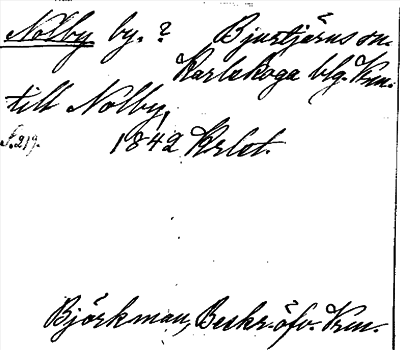 Nolby by. ? Bjurtjärns sn.
Karlskoga blg. Vrm.
till Nolby,
f. 219. 1842 Krlot.
Björkman, Beskr. öfv. Vrm.